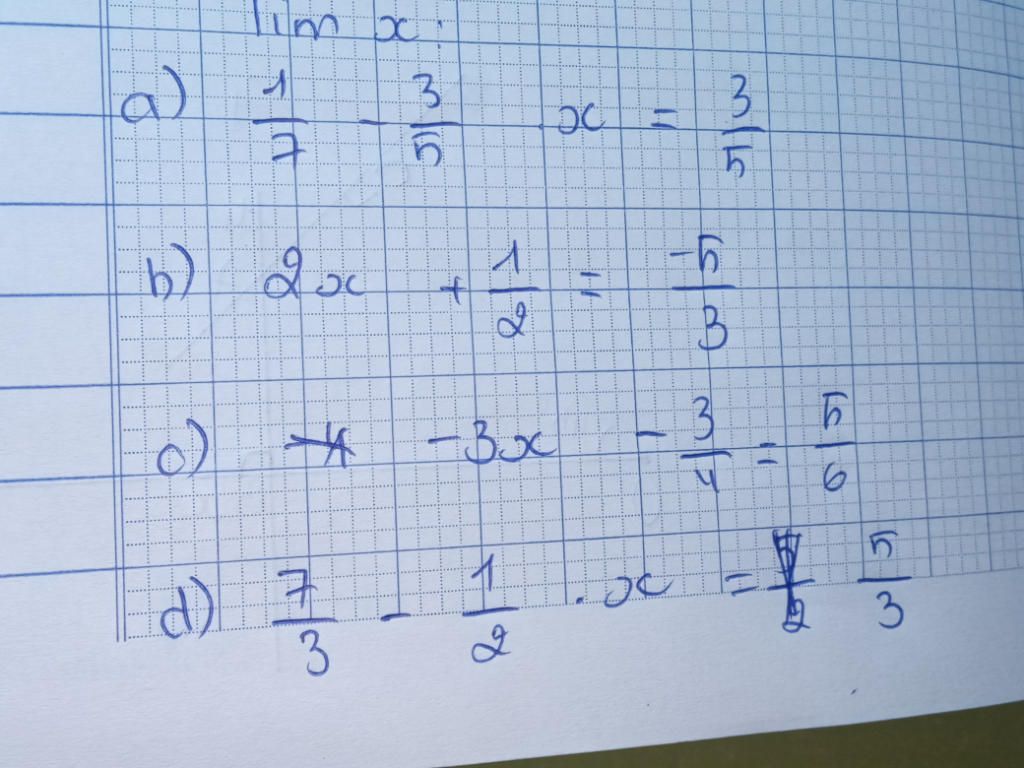 Tìm x:
a) 1/7 - 3/5 . x = 3/5
b) 2x + 1/2 = -5/3
c) -3x - 3/4 = 5/6
d) 7/3 - 1/2 . x = 5/3